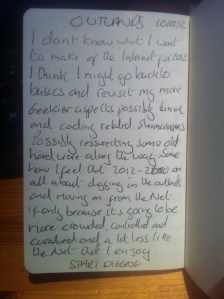 OUTLANDS
I dont know what I want
to make of the Internet for 2012
I think I might go back to
basics and revisit my more
geekier aspects possibly Linux
and coding related
Possibly resurrecting some old
hardware along the way. Some
how I feel that 2012 -
all about digging in the outlands
and moving on from the Net
if only because it's going to be
more crowded, controlled and
and a lot less like
the Net that I enjoy
START DIGGING